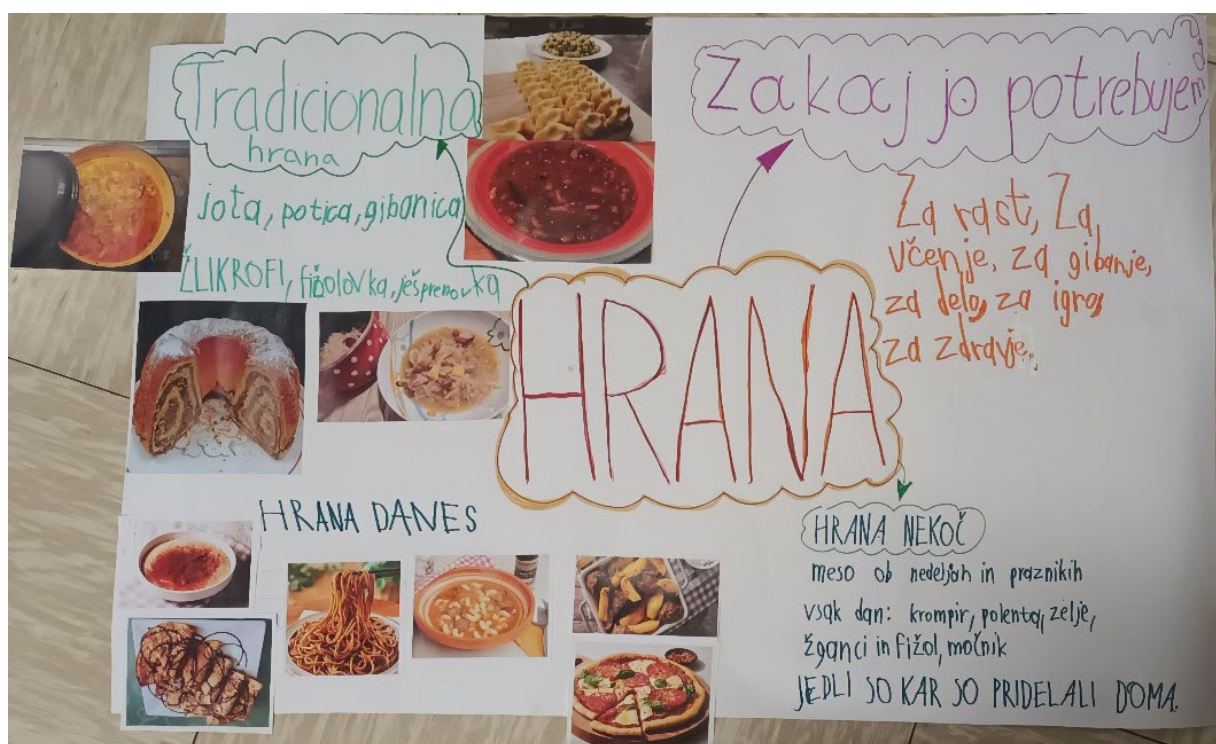 Tradicionalna
hrana
jota, potica, gibanica
ŽLIKROFI, fižolovka, ješprenovka
Zakaj jo potrebujem?
Za rast, Za
učenje, za gibanje,
za delo, za igro,
za zdravje.
HRANA
HRANA DANES
HRANA NEKOČ
meso ob nedeljah in praznikih
vsak dan: krompir, polenta, zelje,
žganci in fižol, močnik
JEDLI SO KAR SO PRIDELALI DOMA.